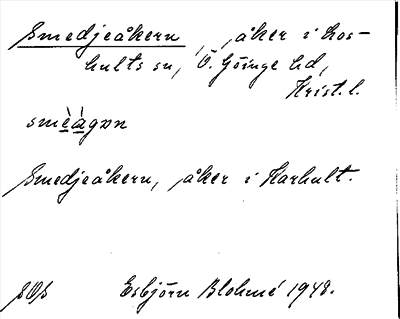 Smedjeåkern, åker i Los-
hults sn, Ö. Göinge hd,
Krist. l.
smèàgɒn
Smedjeåkern, åker i Harhult.
Esbjörn Blohmé 1948.